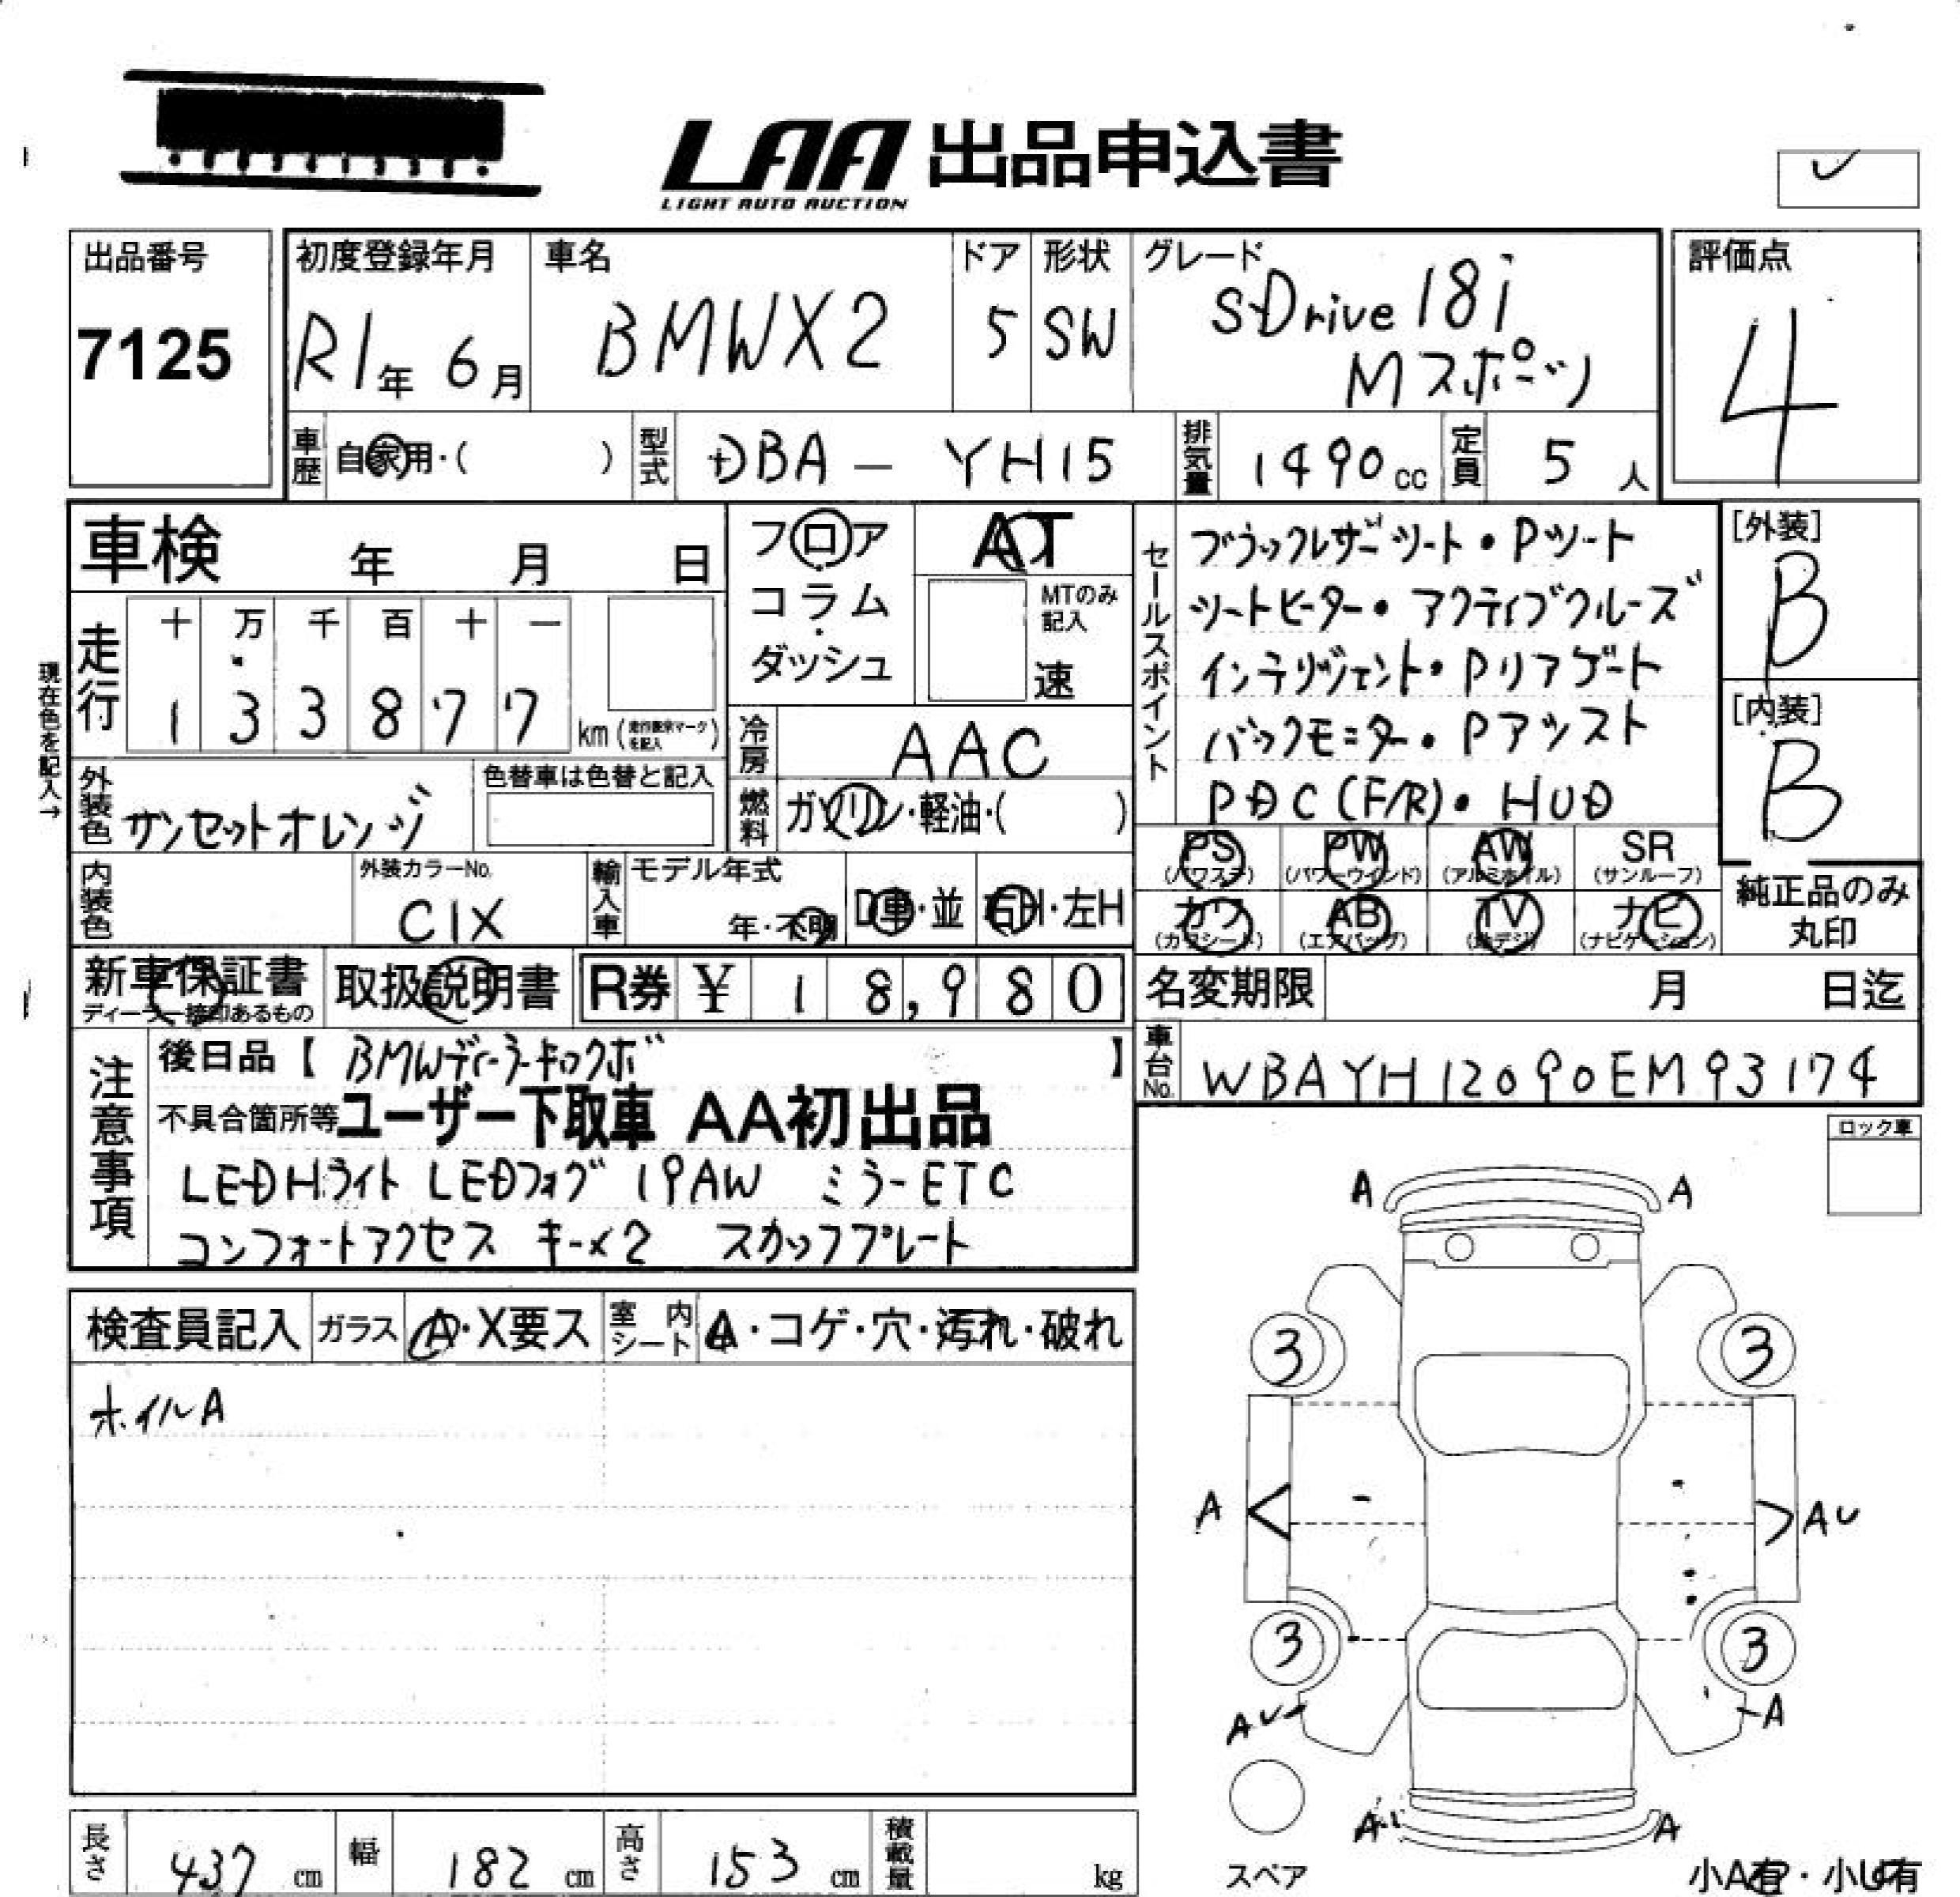 LAA 出品申込書
LIGHT AUTO AUCTION
出品番号
7125
初度登録年月
R1年 6月
車名
BMWX2
ドア
5
形状
SW
グレード
SDrive 18i
Mスポーツ
評価点
4
車歴 自家用・( )
型式 DBA - YH15
排気量 1490cc
定員 5人
車検 年 月 日
フロア
コラム
・
ダッシュ
AT
MTのみ
記入
速
走行
十 万 千 百 十 一
1 3 3 8 7 7 km
現在色を記入→
冷房 AAC
燃料 ガソリン・軽油・( )
外装色 サンセットオレンジ
色替車は色替と記入
内装色
外装カラーNo.
C1X
輸入車
モデル年式
年・不明
D車・並
右H・左H
セールスポイント
ブラックレザーシート・Pシート
シートヒーター・アクティブクルーズ
インテリジェント・Pリアゲート
バックモニター・Pアシスト
PDC(F/R)・HUD
[外装]
B
[内装]
B
PS (パワステ)
PW (パワーウインド)
AW (アルミホイル)
SR (サンルーフ)
カワ (カワシート)
AB (エアバッグ)
TV (地デジ)
ナビ (ナビゲーション)
純正品のみ
丸印
新車保証書
ディーラー捺印あるもの
取扱説明書
R券 ¥ 18,980
名変期限 月 日迄
車台No. WBAYH12090EM93174
注意事項
後日品【 BMWディーラーキロクボ 】
不具合箇所等 ユーザー下取車 AA初出品
LEDHライト LEDフォグ 19AW ミラーETC
コンフォートアクセス キー×2 スカッフプレート
ロック車
検査員記入
ガラス A・X要ス
室内シート A・コゲ・穴・汚れ・破れ
ホイルA
A A
3 3
A AU
3 3
AU A
A A
スペア
小A有・小U有
長さ 437 cm
幅 182 cm
高さ 153 cm
積載量 kg